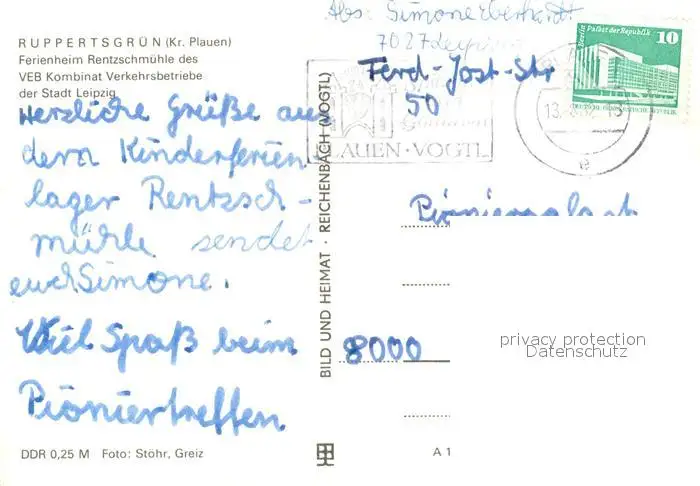 RUPPERTSGRÜN (Kr. Plauen)
Ferienheim Rentzschmühle des
VEB Kombinat Verkehrsbetriebe
der Stadt Leipzig
Herzliche Grüße aus
dem Kinderferien-
lager Rentzsch-
mühle sendet
euch Simone.
Viel Spaß beim
Pioniertreffen
DDR 0,25 M Foto: Stöhr, Greiz
BILD UND HEIMAT · REICHENBACH (VOGTL)
A 1
Abs: Simone Eberhardt
7027 Leipzig
Ferd-Jost-Str
50
PLAUEN · VOGTL
13.
e
Berlin Palast der Republik
10
DEUTSCHE DEMOKRATISCHE REPUBLIK
Pionierpalast
8000
privacy protection
Datenschutz